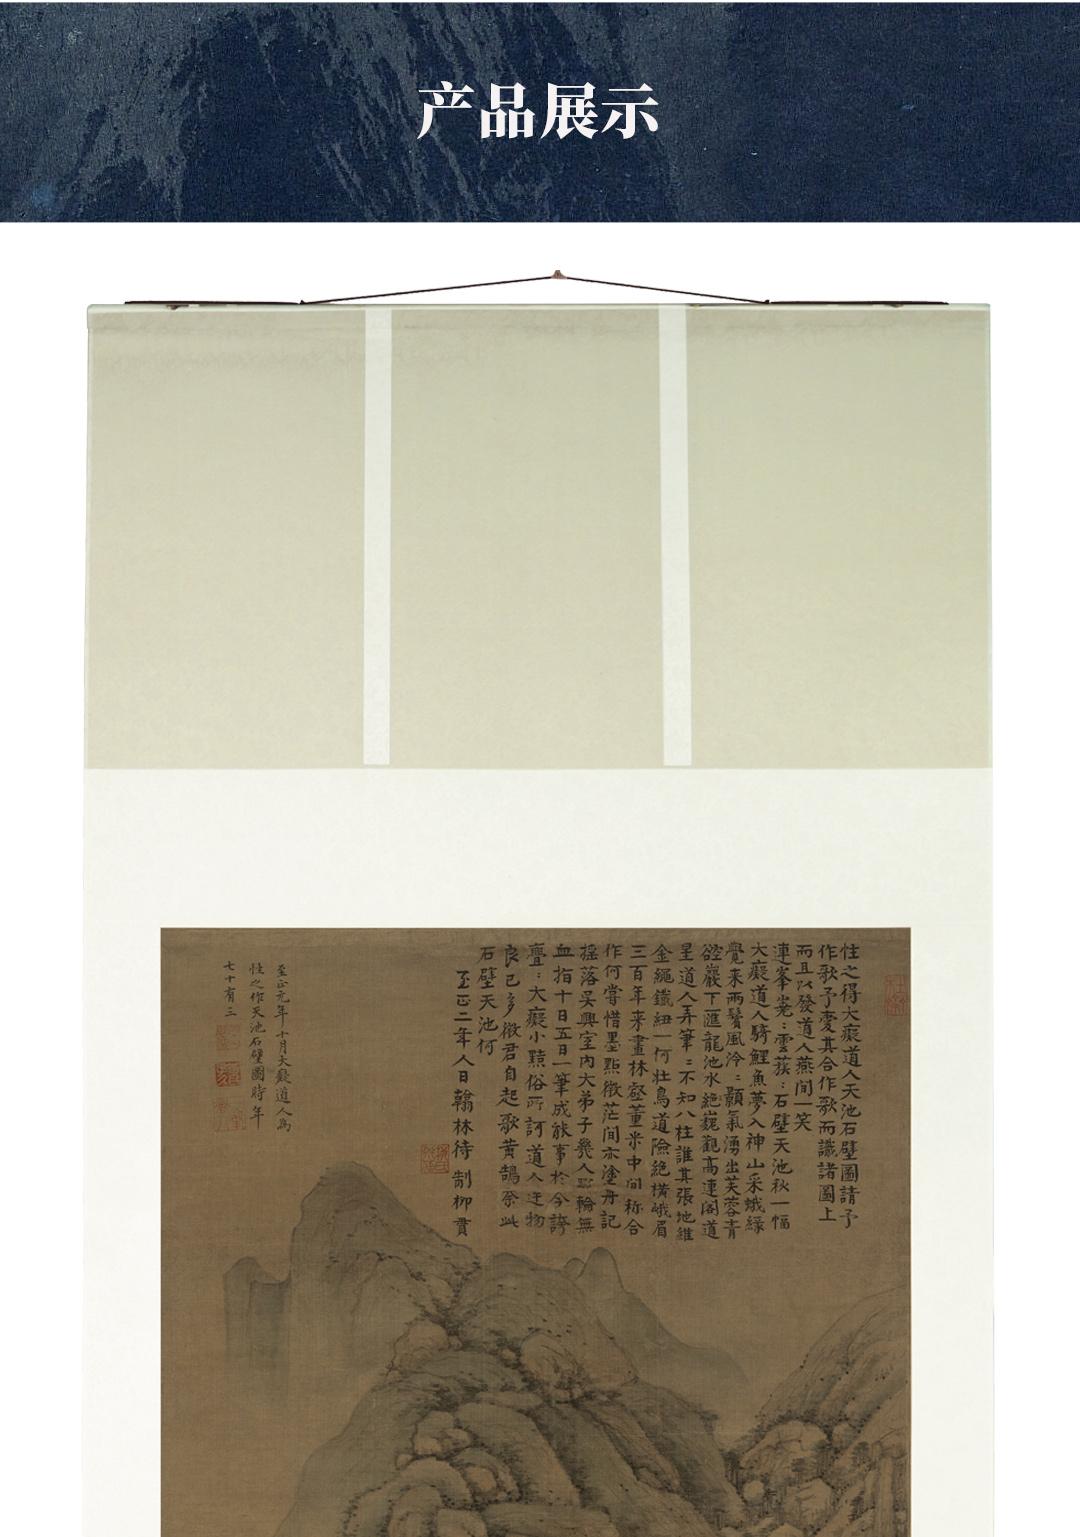 产品展示
性之得大癡道人天池石壁圖請予
作歌予愛其合作歌而識諸圖上
而且以發道人燕閒一笑
連峯嵬:雲蔟:石壁天池秋一幅
大癡道人騎鯉魚夢入神山采蛾緑
覺來兩鬢風泠:顥氣湧出芙蓉青
巖下匯龍池水絶巍觀高連閣道
呈道人弄筆:不知八柱誰其張地維
金繩鐵紐一何壯鳥道險絶橫峨眉
三百年来畫林壑董米中间称合
作何嘗惜墨點微茫間亦塗丹記
摇落吴興室内大弟子幾人輪無
血指十日五日一筆成能事於今誇
亹:大癡小黠俗所訶道人迕物
良已多微君自起歌黄鵠奈此
石壁天池何
至正二年人日翰林待制柳貫
至正元年十月大癡道人爲
性之作天池石壁圖時年
七十有三